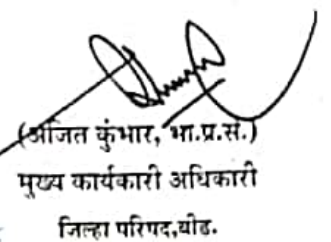 (अजित कुंभार, भा.प्र.से.)
मुख्य कार्यकारी अधिकारी
जिल्हा परिषद,बीड.